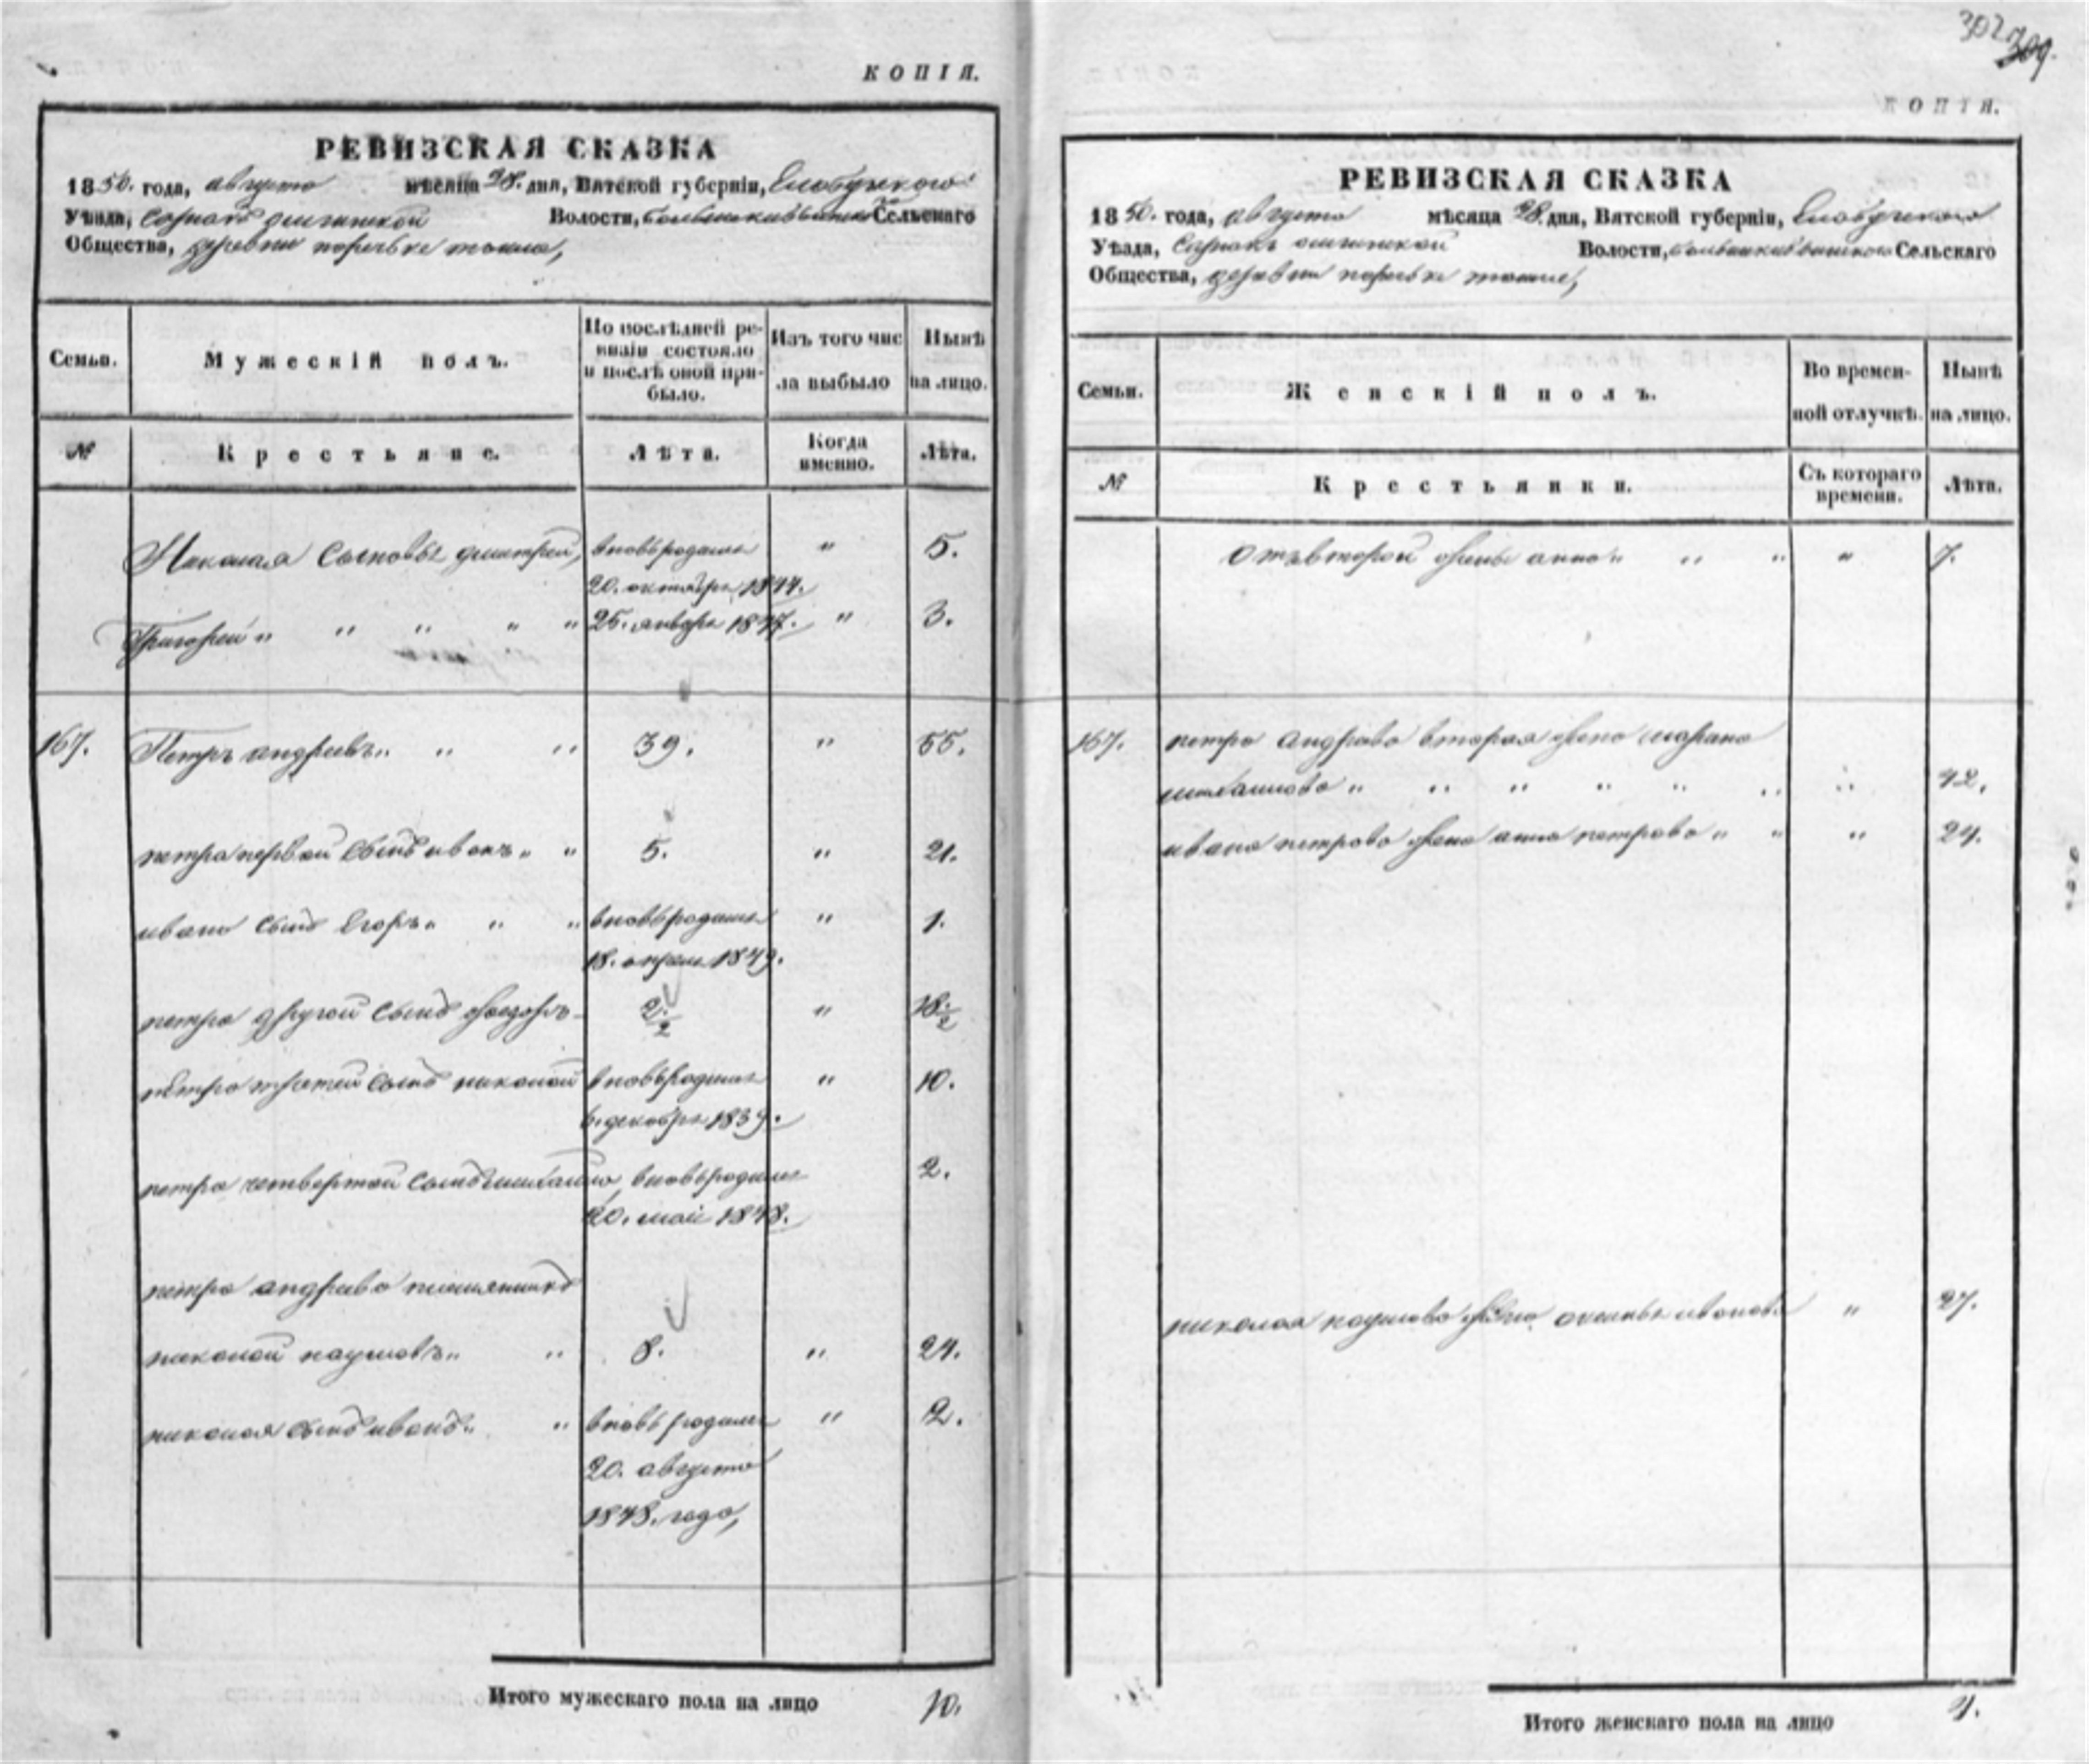 КОПІЯ.
РЕВИЗСКАЯ СКАЗКА
1850. года, августа мѣсяца 28. дня, Вятской губерніи,
Уѣзда, Волости, Сельскаго
Общества, деревни
Семьи.
Мужескій полъ.
По послѣдней ре-
визіи состояло
и послѣ оной при-
было.
Изъ того чис
ла выбыло
Нынѣ
на лицо.
№
Крестьяне.
Лѣта.
Когда
именно.
Лѣта.
Николая Сыновья дмитрей, вновьродился " 5.
20. октября 1844.
Григорей " " " " " 25. января 1847. " 3.
167. Петръ андреевъ " " " 39. " 55.
петра первой сынъ иванъ " " 5. " 21.
ивана сынъ Егоръ " " " вновьродился " 1.
18. апреля 1849.
петра другой сынъ 2./2 " 18./2
петра третей сынъ николай вновьродился " 10.
6. декабря 1839.
петра четвертой сынъ михайло вновьродился 2.
20. май 1848.
петра андреева племянникъ
николай наумовъ " " 8. " 24.
николая сынъ иванъ " " вновьродился " 2.
20. августа
1848. года,
Итого мужескаго пола на лицо 10.
302
309.
КОПІЯ.
РЕВИЗСКАЯ СКАЗКА
1850. года, августа мѣсяца 28. дня, Вятской губерніи,
Уѣзда, Волости, Сельскаго
Общества, деревни
Семьи.
Женскій полъ.
Во времен-
ной отлучкѣ.
Нынѣ
на лицо.
№
Крестьянки.
Съ котораго
времени.
Лѣта.
отъ второй жены анна " " " " 7.
167. петра андреева вторая жена марина
михайлова " " " " " " " 42.
ивана петрова жена анна петрова " " " 24.
николая наумова жена иванова " 27.
Итого женскаго пола на лицо 4.